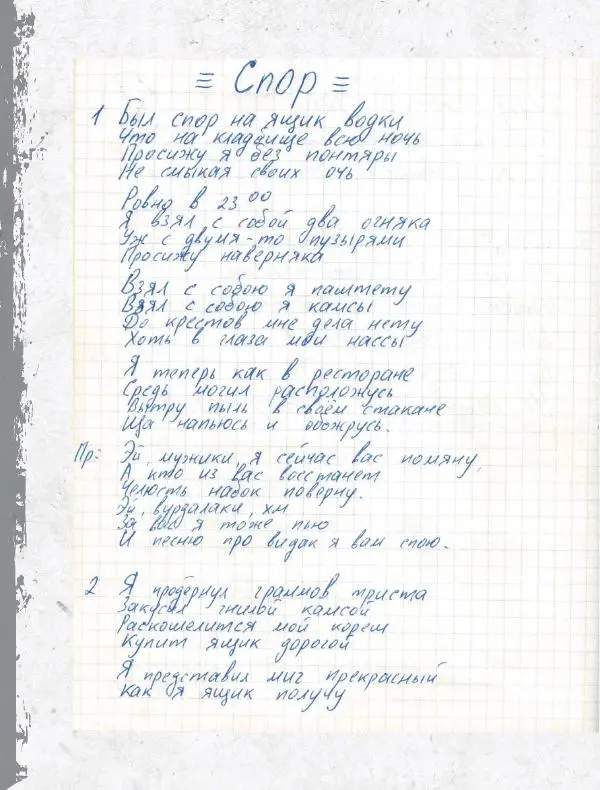 ≡ Спор ≡
1 Был спор на ящик водки
Что на кладбище всю ночь
Просижу я без понтяры
Не смыкая своих очь
Ровно в 23 00
Я взял с собой два огняка
Уж с двумя-то пузырями
Просижу наверняка
Взял с собою я паштету
Взял с собою я камсы
До крестов мне дела нету
Хоть в глаза мои нассы
Я теперь как в ресторане
Средь могил расположусь
Вытру пыль в своём стакане
Ща напьюсь и обожрусь.
Пр: Эй, мужики, я сейчас вас помяну,
А кто из вас восстанет
Челюсть набок поверну.
Эй, вурдалаки, хм
За вас я тоже пью
И песню про видак я вам спою.
2 Я продёрнул граммов триста
Закусил гнилой камсой
Раскошелится мой кореш
Купит ящик дорогой
Я представил миг прекрасный
Как я ящик получу